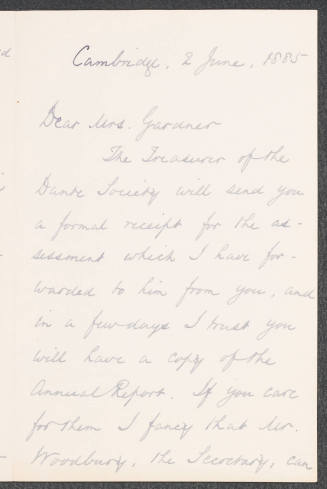 Cambridge, 2 June, 1885
Dear Mrs. Gardner
The Treasurer of the
Dante Society will send you
a formal receipt for the as-
sessment which I have for-
warded to him from you, and
in a few days I trust you
will have a copy of the
Annual Report. If you care
for them I fancy that Mr.
Woodbury, the Secretary, can